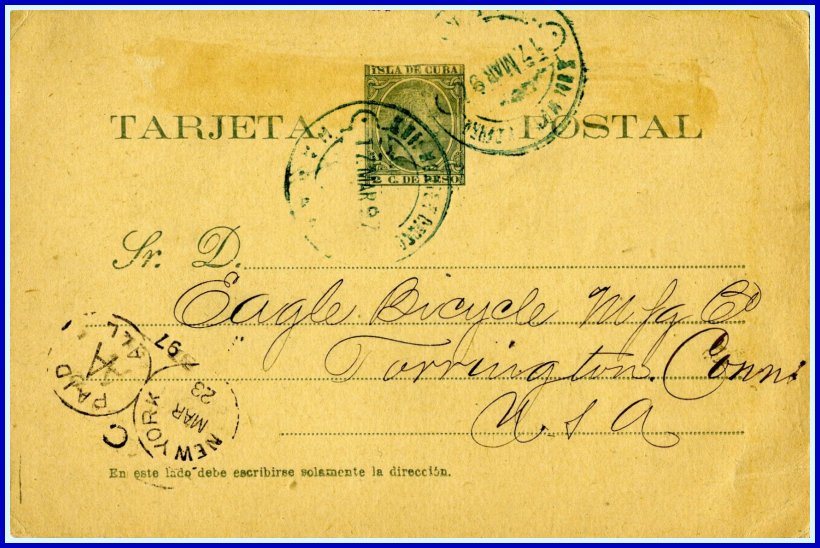 ISLA DE CUBA
TARJETA POSTAL
2 C. DE PESO
17.MAR 97
17.MAR 9
Sr. D.
Eagle Bicycle Mfg Co
Torrington. Conn.
U S A
PAID
ALL
NEW YORK
MAR 23
97
En este lado debe escribirse solamente la dirección.